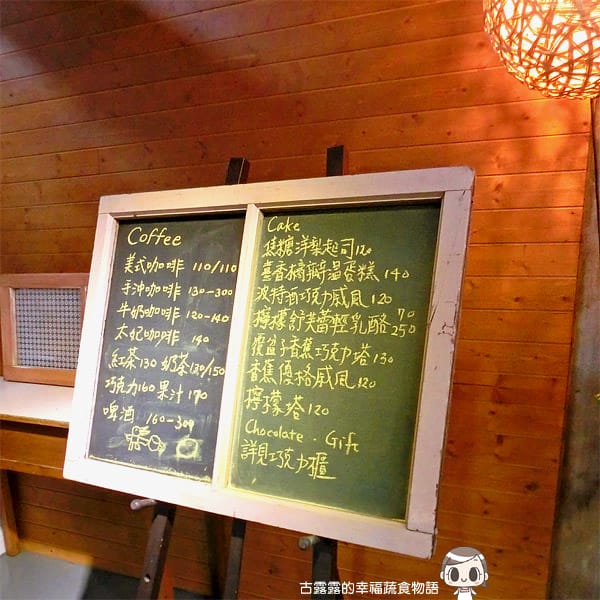 Coffee
美式咖啡 110/110
手沖咖啡 130-300
牛奶咖啡 120-140
太妃咖啡 140
紅茶130 奶茶120/150
巧克力160 果汁170
啤酒 160-300
Cake
焦糖洋梨起司120
薑香橘瓣溫蛋糕 140
波特酒巧克力戚風 120
檸檬舒芙蕾輕乳酪 70 250
覆盆子香蕉巧克力塔130
香蕉優格戚風120
檸檬塔 120
Chocolate · Gift
詳見巧克力櫃
古露露的幸福蔬食物語